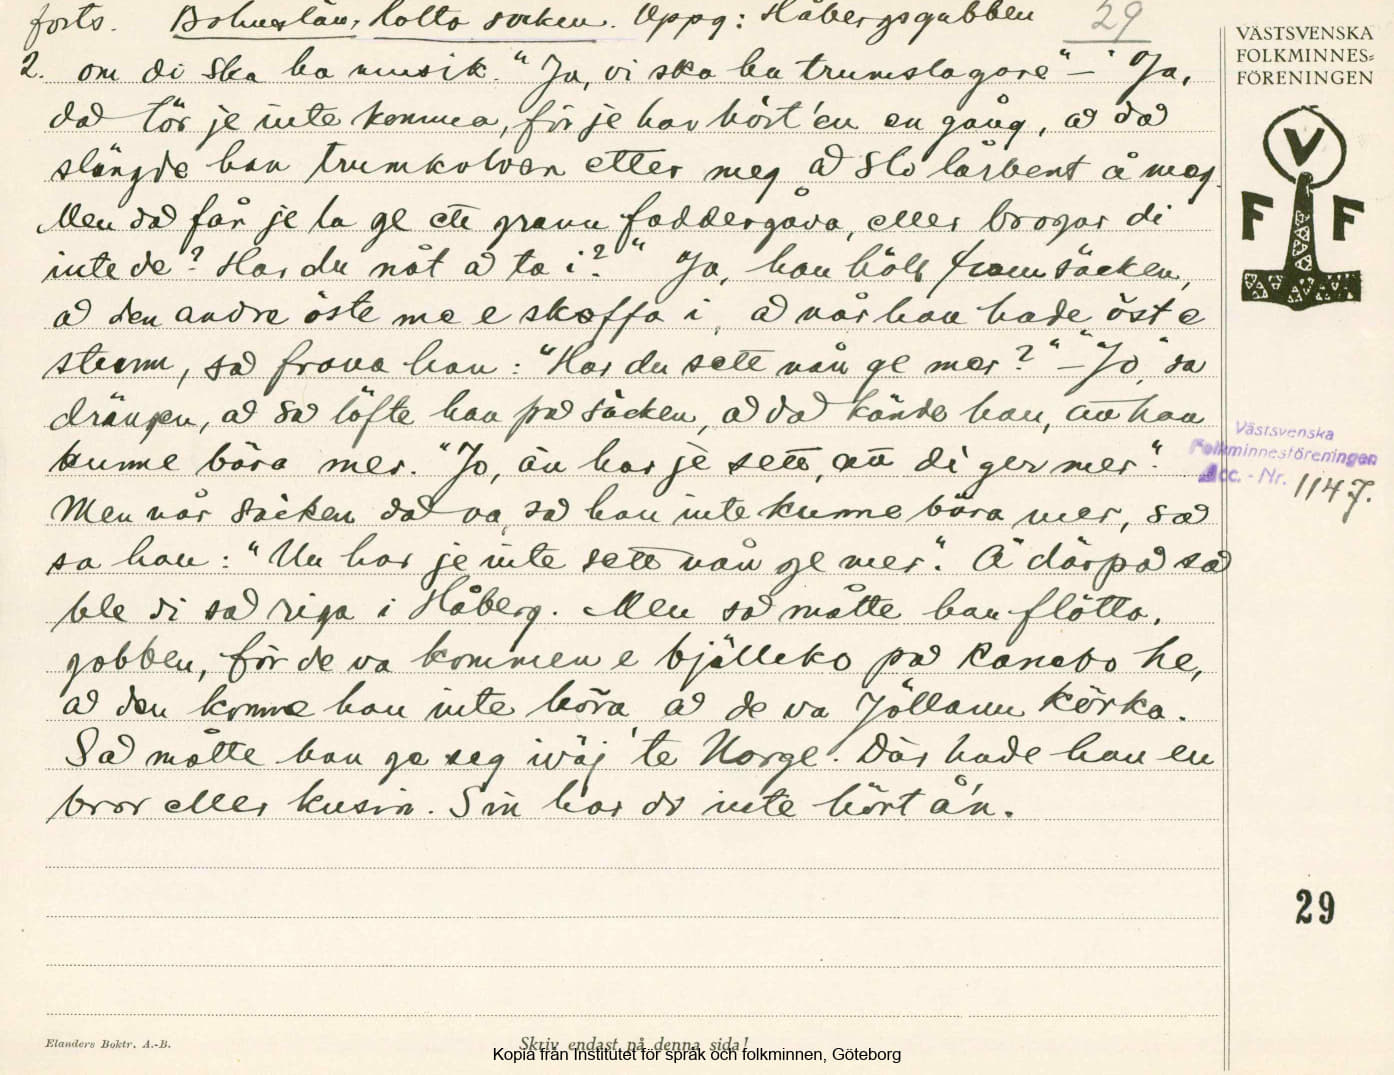 forts. Bohuslän, Kalto socken. Uppg: Håbergsgubben 29
2. om di ska ha musik." Ja, vi ska ha trumslagare" — "Ja,
då tör je inte komma, för je har hört'en en gång, å då
slängde han trumkolven etter meg å slo lårbent å meg.
Men då får je la ge ett grann faddergåva, eller brogar di
inte de? Har du nåt å ta i?" Ja, han höll fram säcken,
å den andre öste me e skoffa i, å når han hade öst e
stunn, så frava han: "Har du sett nån ge mer?" — "Jo", sa
drängen, å så löfte han på säcken, å då kände han, att han
kunne bära mer. "Jo, än har je sett, att di ger mer".
Men når säcken då va, så han inte kunne bära mer, så
sa han: "Nu har je inte sett nån ge mer". Å därpå så
ble di så riga i Håberg. Men så måtte han flötta,
gobben, för de va kommen e bjälleko på Ranebo he,
å den konne han inte höra å de va Jöllann körka.
Så måtte han ge seg iväj te Norge. Där hade han en
bror eller kusin. Sin har di inte hört å'n.
VÄSTSVENSKA
FOLKMINNES=
FÖRENINGEN
V
F F
Västsvenska
Folkminnesföreningen
Acc. - Nr. 1147.
29
Elanders Boktr. A.-B.
Skriv endast på denna sida!
Kopia från Institutet för språk och folkminnen, Göteborg